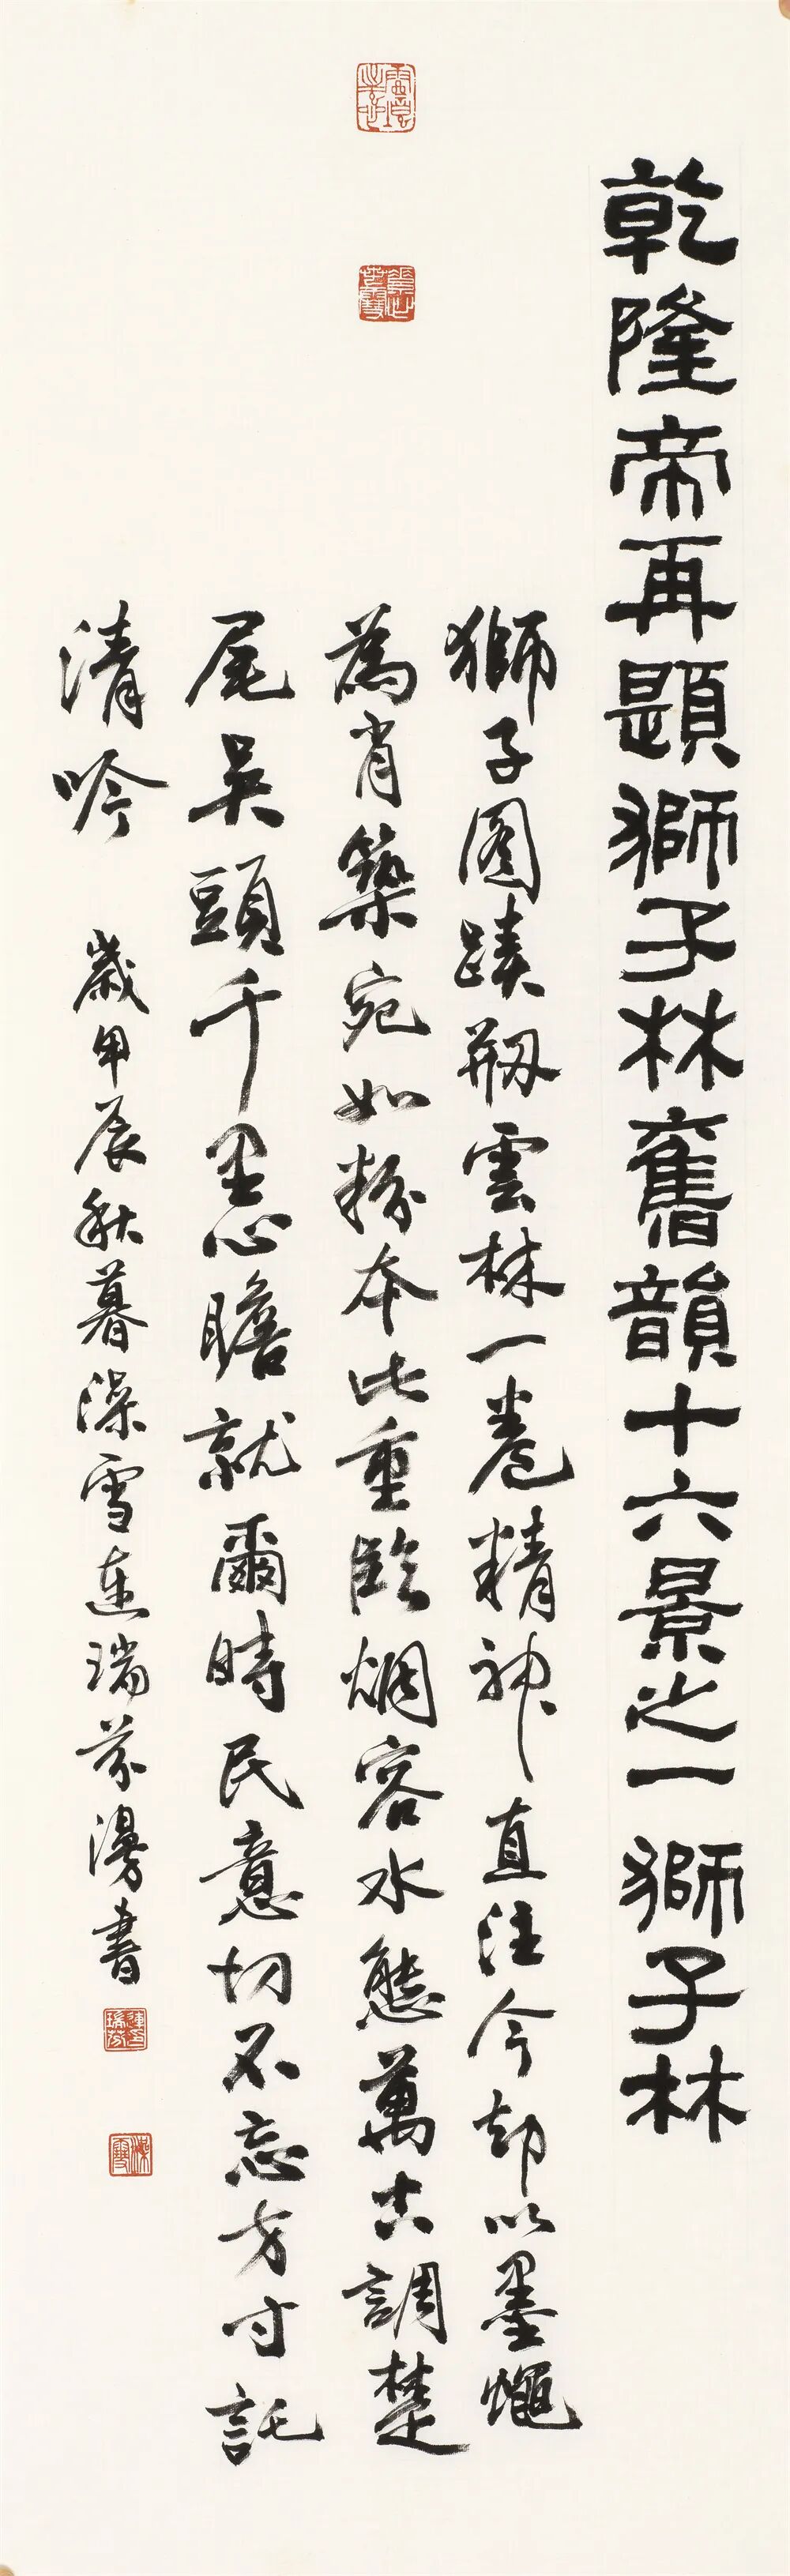 乾隆帝再題獅子林舊韻十六景之一 獅子林
獅子園蹟剏雲林一卷精神直注今却以墨繩
為肖築宛如粉本此重臨烟容水態萬古調楚
尾吳頭千里心瞻就爾時民意切不忘方寸託
清吟 歲甲辰秋暮澡雪連瑞芬漫書